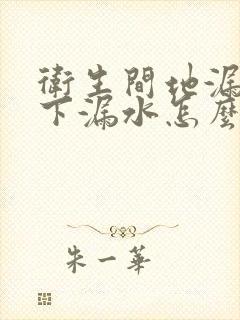 衛生間地漏
下漏水怎麼
朱一華